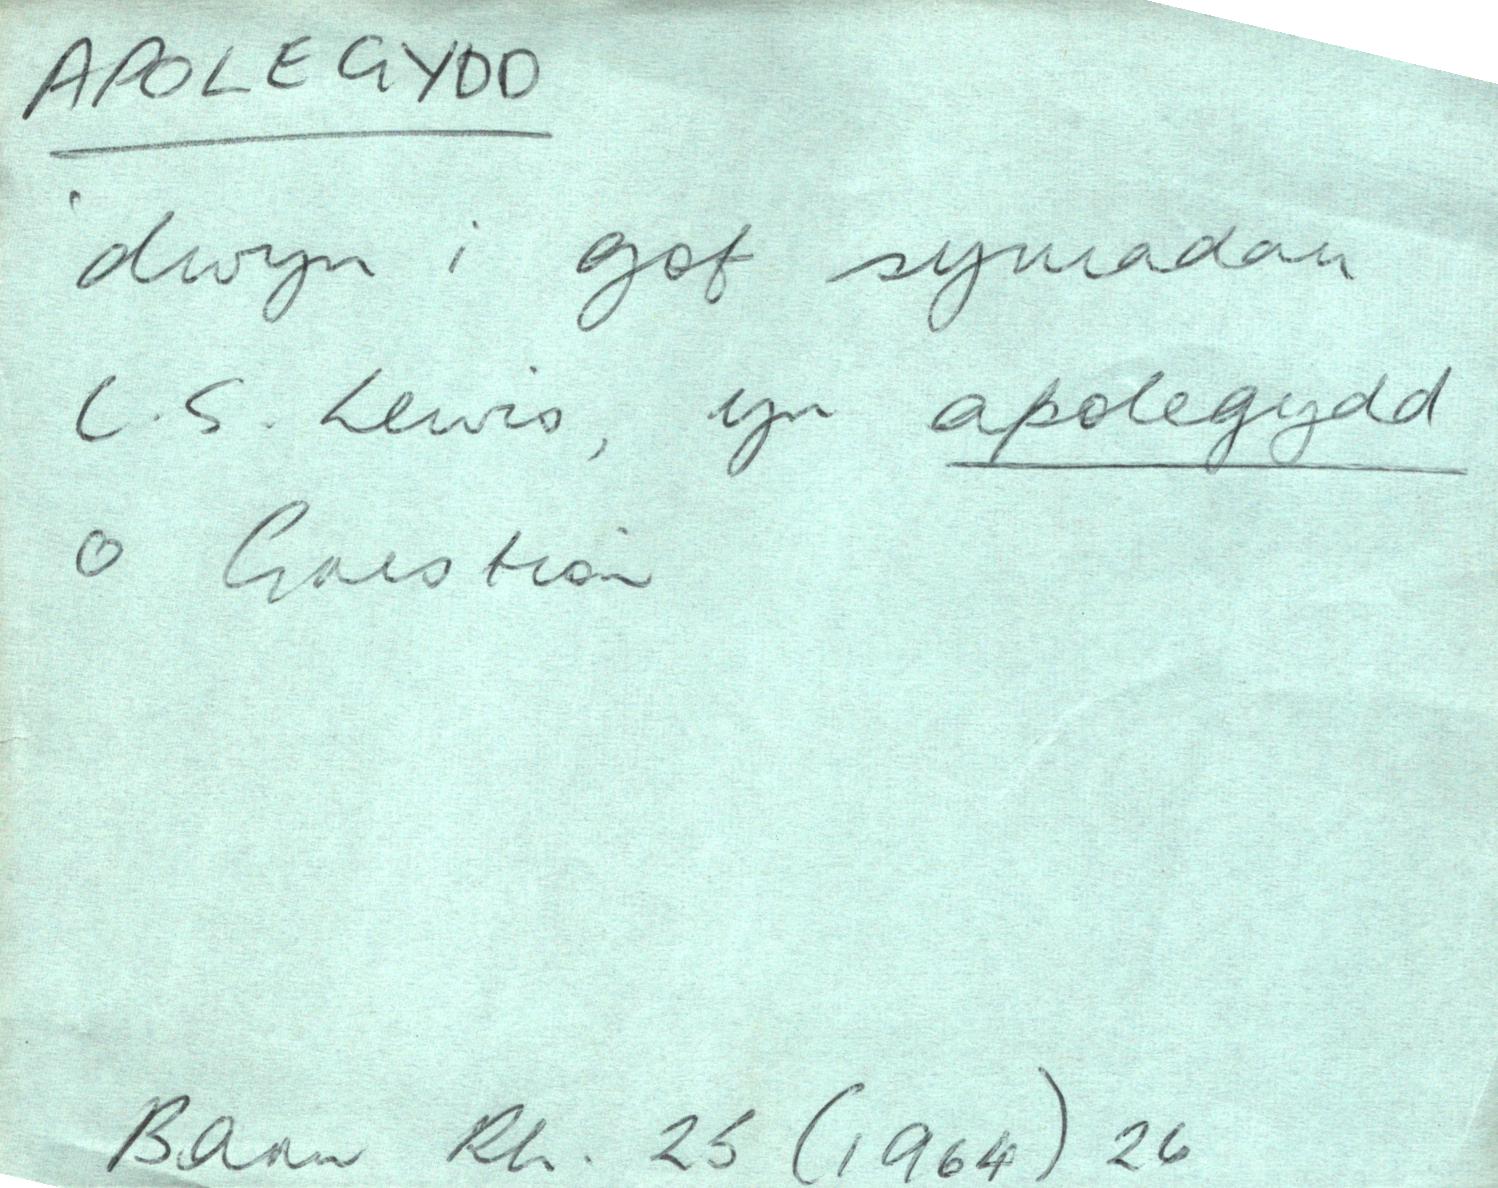 APOLEGYDD
'dwyn i gof symadau
C.S. Lewis, yn apolegydd
o Gristion
Barn Rh. 25 (1964) 26